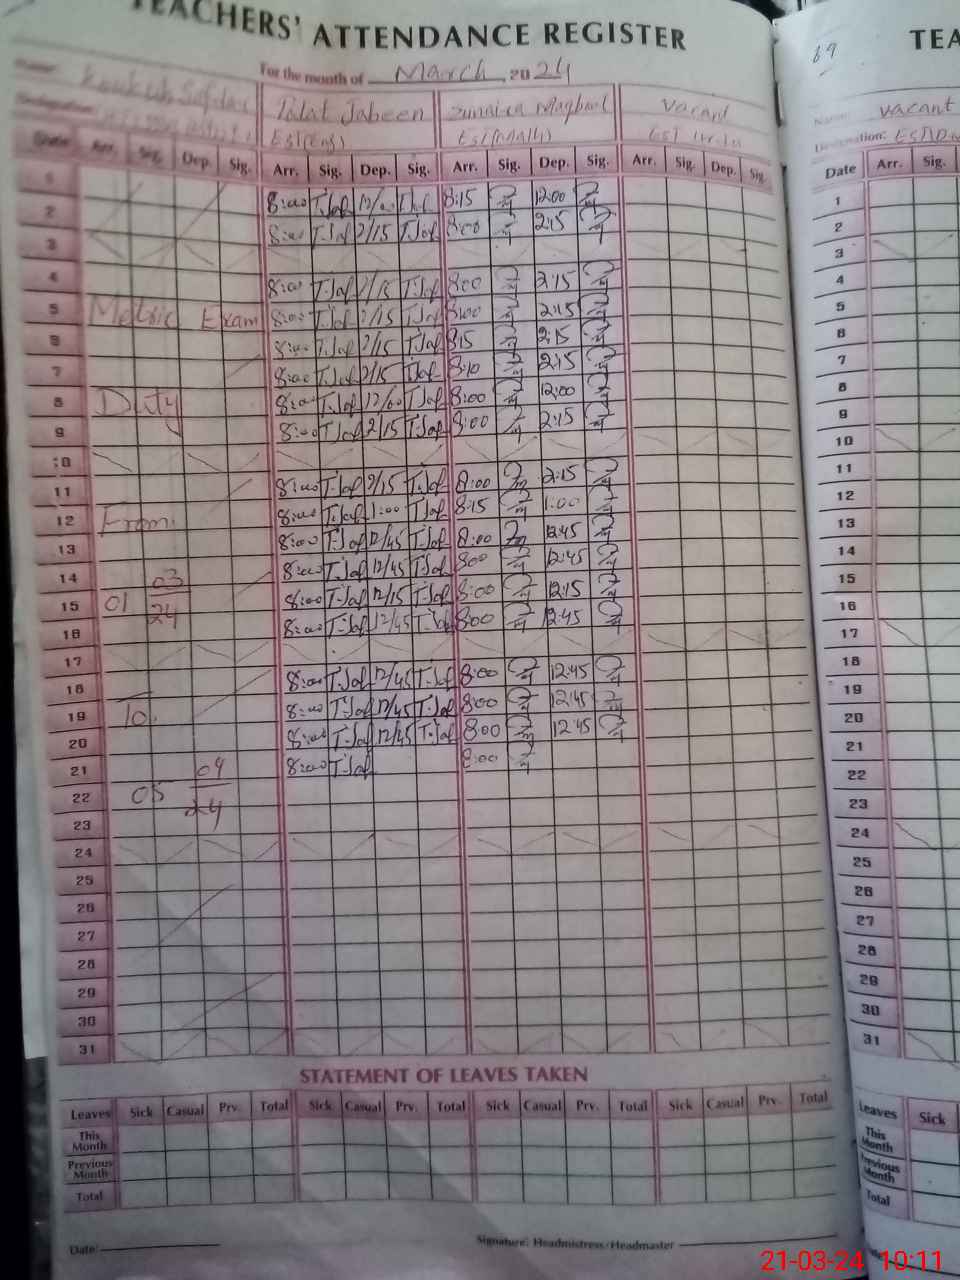 TEACHERS' ATTENDANCE REGISTER
For the month of March, 2024
Name: Talat Jabeen Vacant
Designation:
Date Arr. Sig. Dep. Sig. Arr. Sig. Dep. Sig. Arr. Sig. Dep. Sig. Arr. Sig. Dep. Sig.
1 8:00 T.Jaf 12/00 T.Jaf 8:15 12:00
2 8:00 T.Jaf 2/15 T.Jaf 8:00 2:15
3
4 8:00 T.Jaf 2/15 T.Jaf 8:00 2:15
5 Metric Exam 8:00 T.Jaf 2/15 T.Jaf 8:00 2:15
6 8:00 T.Jaf 2/15 T.Jaf 8:15 2:15
7 8:00 T.Jaf 2/15 T.Jaf 8:10 2:15
8 Duty 8:00 T.Jaf 12/00 T.Jaf 8:00 12:00
9 8:00 T.Jaf 2/15 T.Jaf 8:00 2:15
10
11 8:00 T.Jaf 2/15 T.Jaf 8:00 2:15
12 From 8:00 T.Jaf 1:00 T.Jaf 8:15 1:00
13 8:00 T.Jaf 12/45 T.Jaf 8:00 12:45
14 03 8:00 T.Jaf 12/45 T.Jaf 8:00 12:45
15 01 24 8:00 T.Jaf 12/15 T.Jaf 8:00 12:15
16 8:00 T.Jaf 12/45 T.Jaf 8:00 12:45
17
18 8:00 T.Jaf 12/45 T.Jaf 8:00 12:45
19 To 8:00 T.Jaf 12/45 T.Jaf 8:00 12:45
20 8:00 T.Jaf 12/45 T.Jaf 8:00 12:45
21 04 8:00 T.Jaf 8:00
22 05 24
23
24
25
26
27
28
29
30
31
STATEMENT OF LEAVES TAKEN
Leaves Sick Casual Prv. Total Sick Casual Prv. Total Sick Casual Prv. Total Sick Casual Prv. Total
This Month
Previous Month
Total
Date: Signature: Headmistress/Headmaster
69 TEA
Name: Vacant
Designation:
Date Arr. Sig.
1
2
3
4
5
6
7
8
9
10
11
12
13
14
15
16
17
18
19
20
21
22
23
24
25
26
27
28
29
30
31
Leaves Sick
This Month
Previous Month
Total
21-03-24 10:11